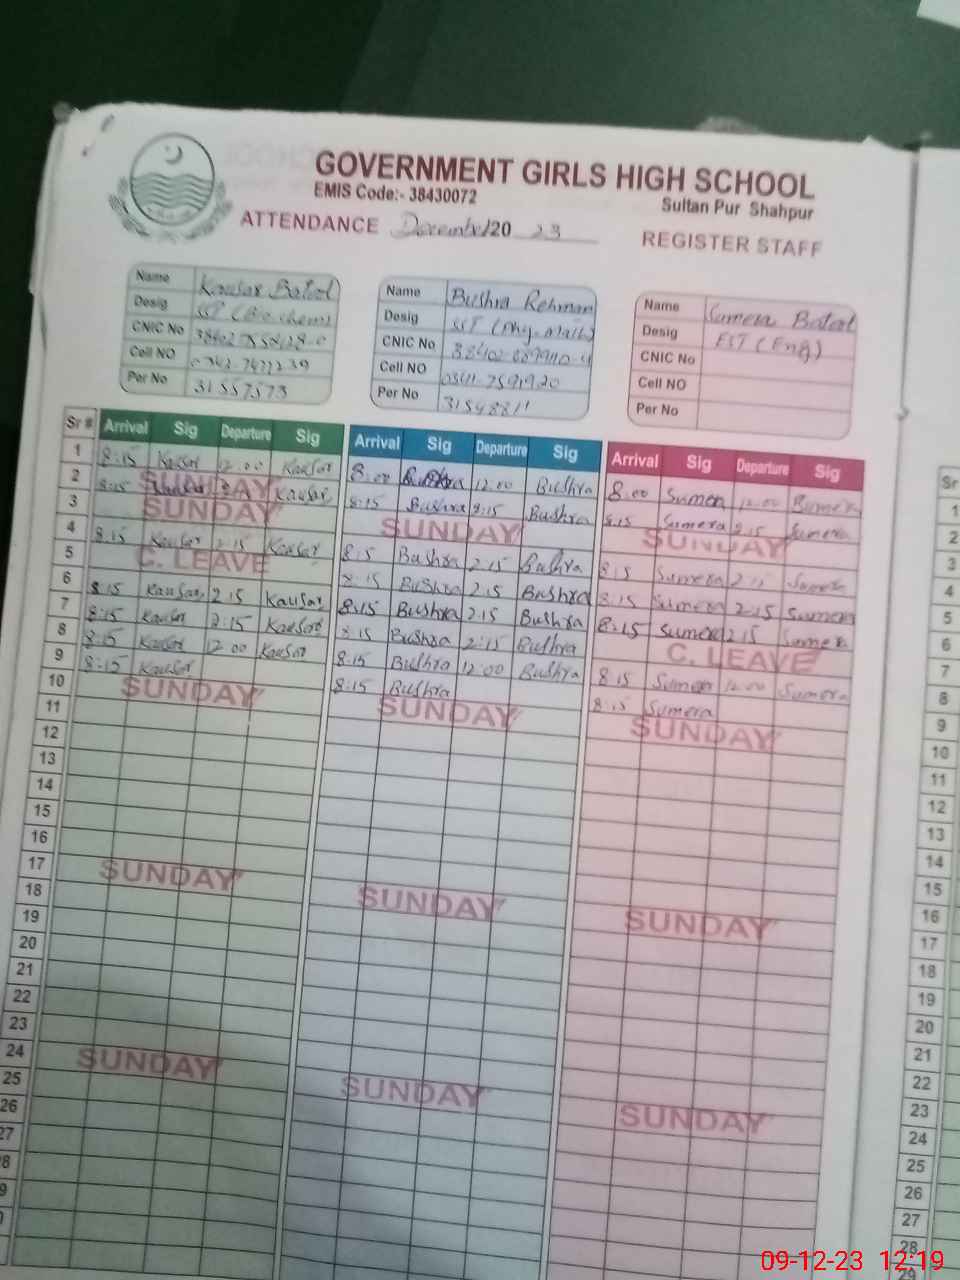 GOVERNMENT GIRLS HIGH SCHOOL
EMIS Code:- 38430072
Sultan Pur Shahpur
ATTENDANCE December 2023
REGISTER STAFF
Name Kausar Batool
Desig SST (Bio.chem)
CNIC No
Cell NO
Per No 31557573
Name Bushra Rehman
Desig SST (Phy.math)
CNIC No
Cell NO
Per No
Name Sumera Batool
Desig EST (Eng)
CNIC No
Cell NO
Per No
Sr # Arrival Sig Departure Sig Arrival Sig Departure Sig Arrival Sig Departure Sig
1 8:15 Kausar 12:00 Kausar 8:00 Bushra 12:00 Bushra 8:00 Sumera 12:00 Sumera
2 8:15 SUNDAY Kausar 8:15 Bushra 2:15 Bushra 8:15 Sumera 2:15 Sumera
3 SUNDAY SUNDAY SUNDAY
4 8:15 Kausar 2:15 Kausar 8:15 Bushra 2:15 Bushra 8:15 Sumera 2:15 Sumera
5 C. LEAVE 8:15 Bushra 2:15 Bushra 8:15 Sumera 2:15 Sumera
6 8:15 Kausar 2:15 Kausar 8:15 Bushra 2:15 Bushra 8:15 Sumera 2:15 Sumera
7 8:15 Kausar 2:15 Kausar 8:15 Bushra 2:15 Bushra C. LEAVE
8 8:15 Kausar 12:00 Kausar 8:15 Bushra 12:00 Bushra 8:15 Sumera 12:00 Sumera
9 8:15 Kausar 8:15 Bushra 8:15 Sumera
10 SUNDAY SUNDAY SUNDAY
11
12
13
14
15
16
17 SUNDAY SUNDAY SUNDAY
18
19
20
21
22
23
24 SUNDAY SUNDAY SUNDAY
25
26
27
Sr
1
2
3
4
5
6
7
8
9
10
11
12
13
14
15
16
17
18
19
20
21
22
23
24
25
26
27
28
09-12-23 12:19